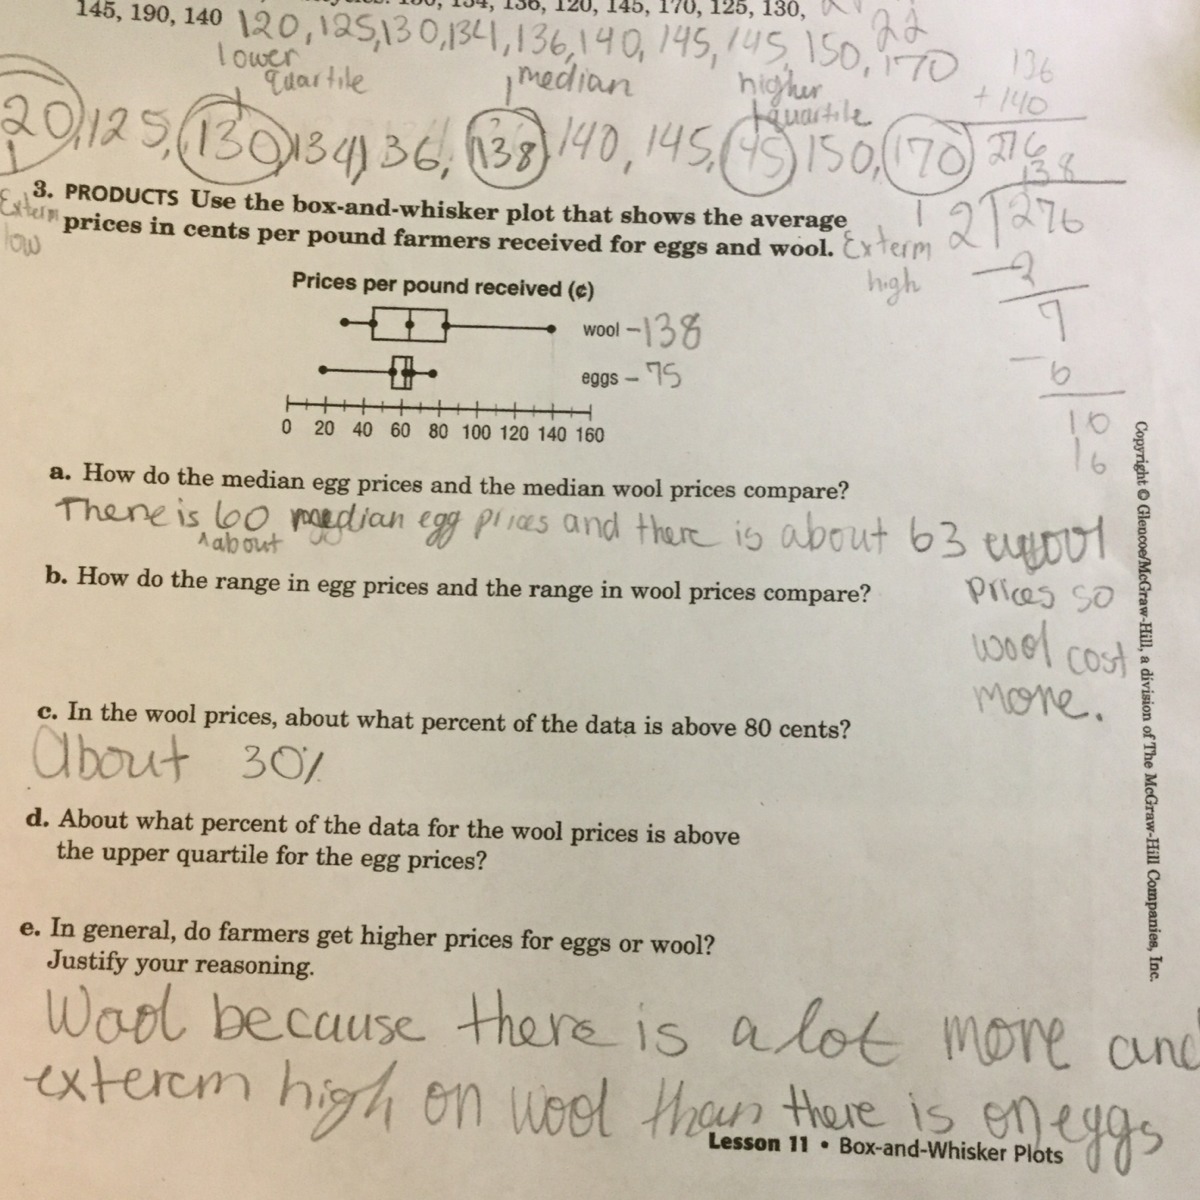 136, 120, 145, 170, 125, 130,
145, 190, 140 120,125,130,134,136,140,145,145,150,170
22
lower quartile
median
higher quartile
136
+140
276
20,125,130,134,136,138,140,145,145,150,170
138
2 276
-2
7
-6
10
16
Exterm low
3. PRODUCTS Use the box-and-whisker plot that shows the average
prices in cents per pound farmers received for eggs and wool.
Exterm
high
Prices per pound received (¢)
wool -138
eggs - 75
0 20 40 60 80 100 120 140 160
a. How do the median egg prices and the median wool prices compare?
There is 60 median egg prices and there is about 63 wool
^about
prices so
wool cost
more.
b. How do the range in egg prices and the range in wool prices compare?
c. In the wool prices, about what percent of the data is above 80 cents?
About 30%
d. About what percent of the data for the wool prices is above
the upper quartile for the egg prices?
e. In general, do farmers get higher prices for eggs or wool?
Justify your reasoning.
Wool because there is a lot more and
exterem high on wool than there is on eggs
Lesson 11 • Box-and-Whisker Plots
Copyright © Glencoe/McGraw-Hill, a division of The McGraw-Hill Companies, Inc.